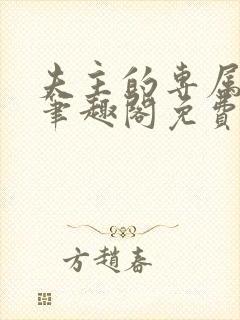 夫主的专属
笔趣阁免费
方趙春